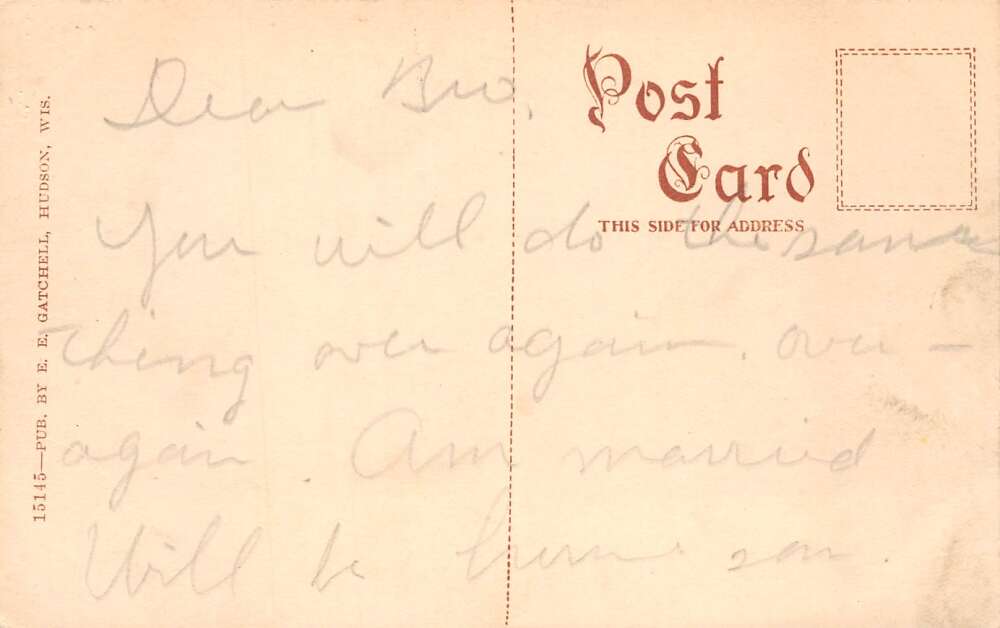 Post
Card
THIS SIDE FOR ADDRESS
15145—PUB. BY E. E. GATCHELL, HUDSON, WIS.
Dear Bro,
You will do the same
thing over again, over —
again Am married
Will be home son.